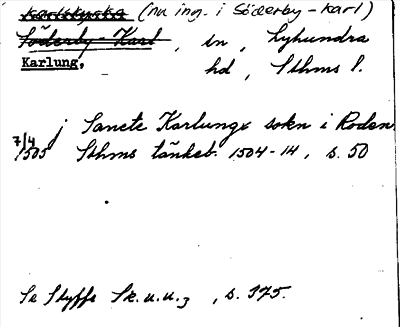 Karlskyrka (nu ing. i Söderby-Karl)
Söderby-Karl, sn, Lyhundra
Karlung, hd, Sthms l.
7/4 1505 j Sancte Karlungx sokn i Roden
Sthms tänkeb. 1504-14, s. 50
Se Styffe Sk. u. u. 3, s. 375.